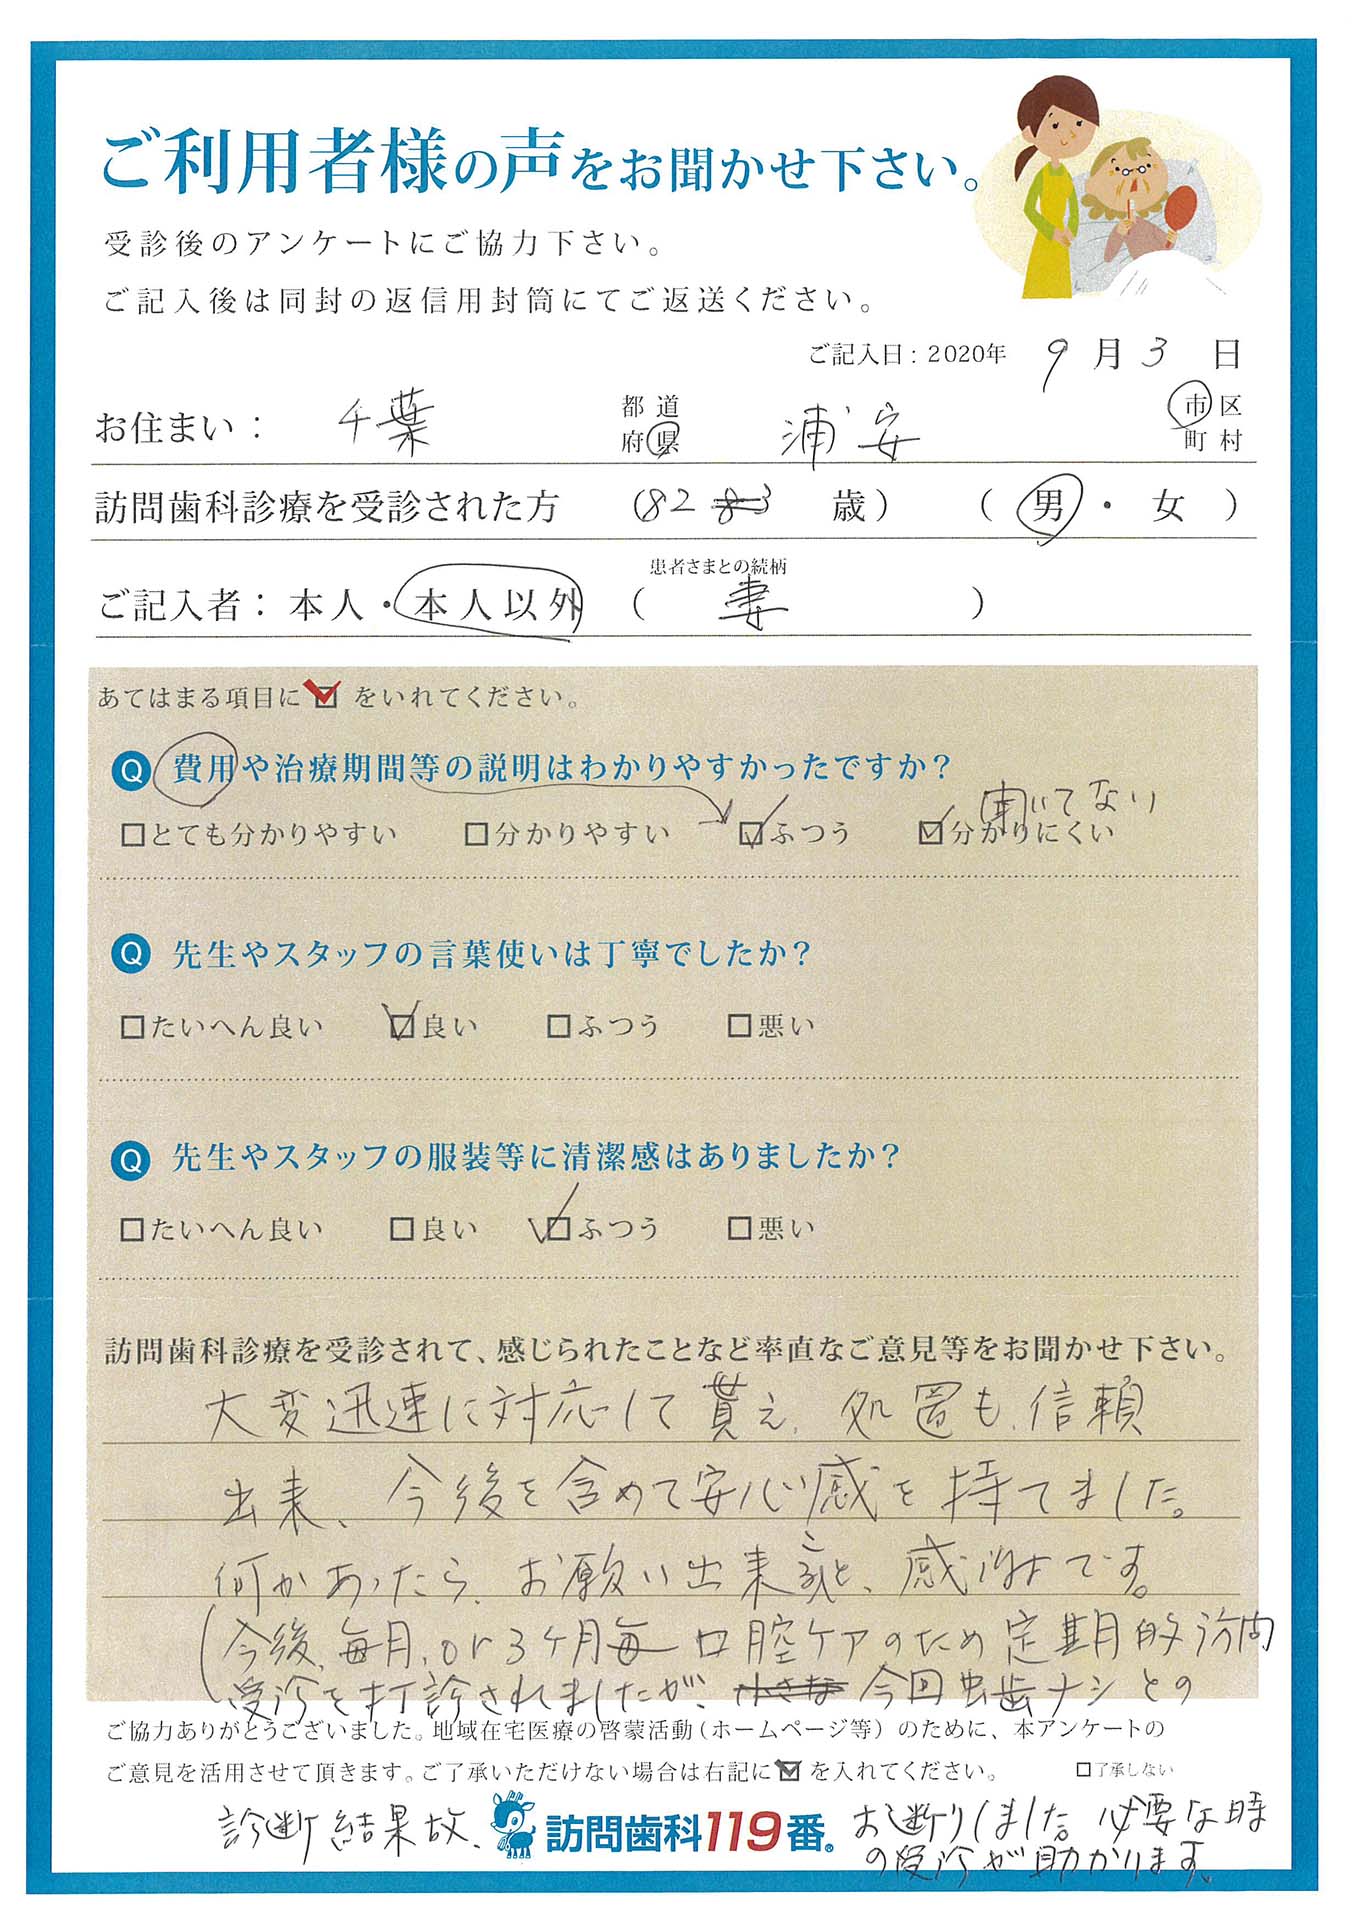 ご利用者様の声をお聞かせ下さい。
受診後のアンケートにご協力下さい。
ご記入後は同封の返信用封筒にてご返送ください。
ご記入日：2020年 9月3日
お住まい： 千葉 都道府県 浦安 市区町村
訪問歯科診療を受診された方 （82 83 歳） （男・女）
患者さまとの続柄
ご記入者：本人・本人以外（妻）
あてはまる項目に☑をいれてください。
Q 費用や治療期間等の説明はわかりやすかったですか？
聞いてない
□とても分かりやすい □分かりやすい ☑ふつう ☑分かりにくい
Q 先生やスタッフの言葉使いは丁寧でしたか？
□たいへん良い ☑良い □ふつう □悪い
Q 先生やスタッフの服装等に清潔感はありましたか？
□たいへん良い □良い ☑ふつう □悪い
訪問歯科診療を受診されて、感じられたことなど率直なご意見等をお聞かせ下さい。
大変迅速に対応して貰え、処置も、信頼
出来、今後を含めて安心感を持てました。
何かあったら、お願い出来ること、感謝です。
（今後、毎月、or 3ケ月毎 口腔ケアのため定期的訪問
受診を打診されましたが、今回虫歯ナシとの
ご協力ありがとうございました。地域在宅医療の啓蒙活動（ホームページ等）のために、本アンケートの
ご意見を活用させて頂きます。ご了承いただけない場合は右記に☑を入れてください。 □了承しない
診断結果故、 訪問歯科119番® お断りしました。必要な時
の受診が助かります。